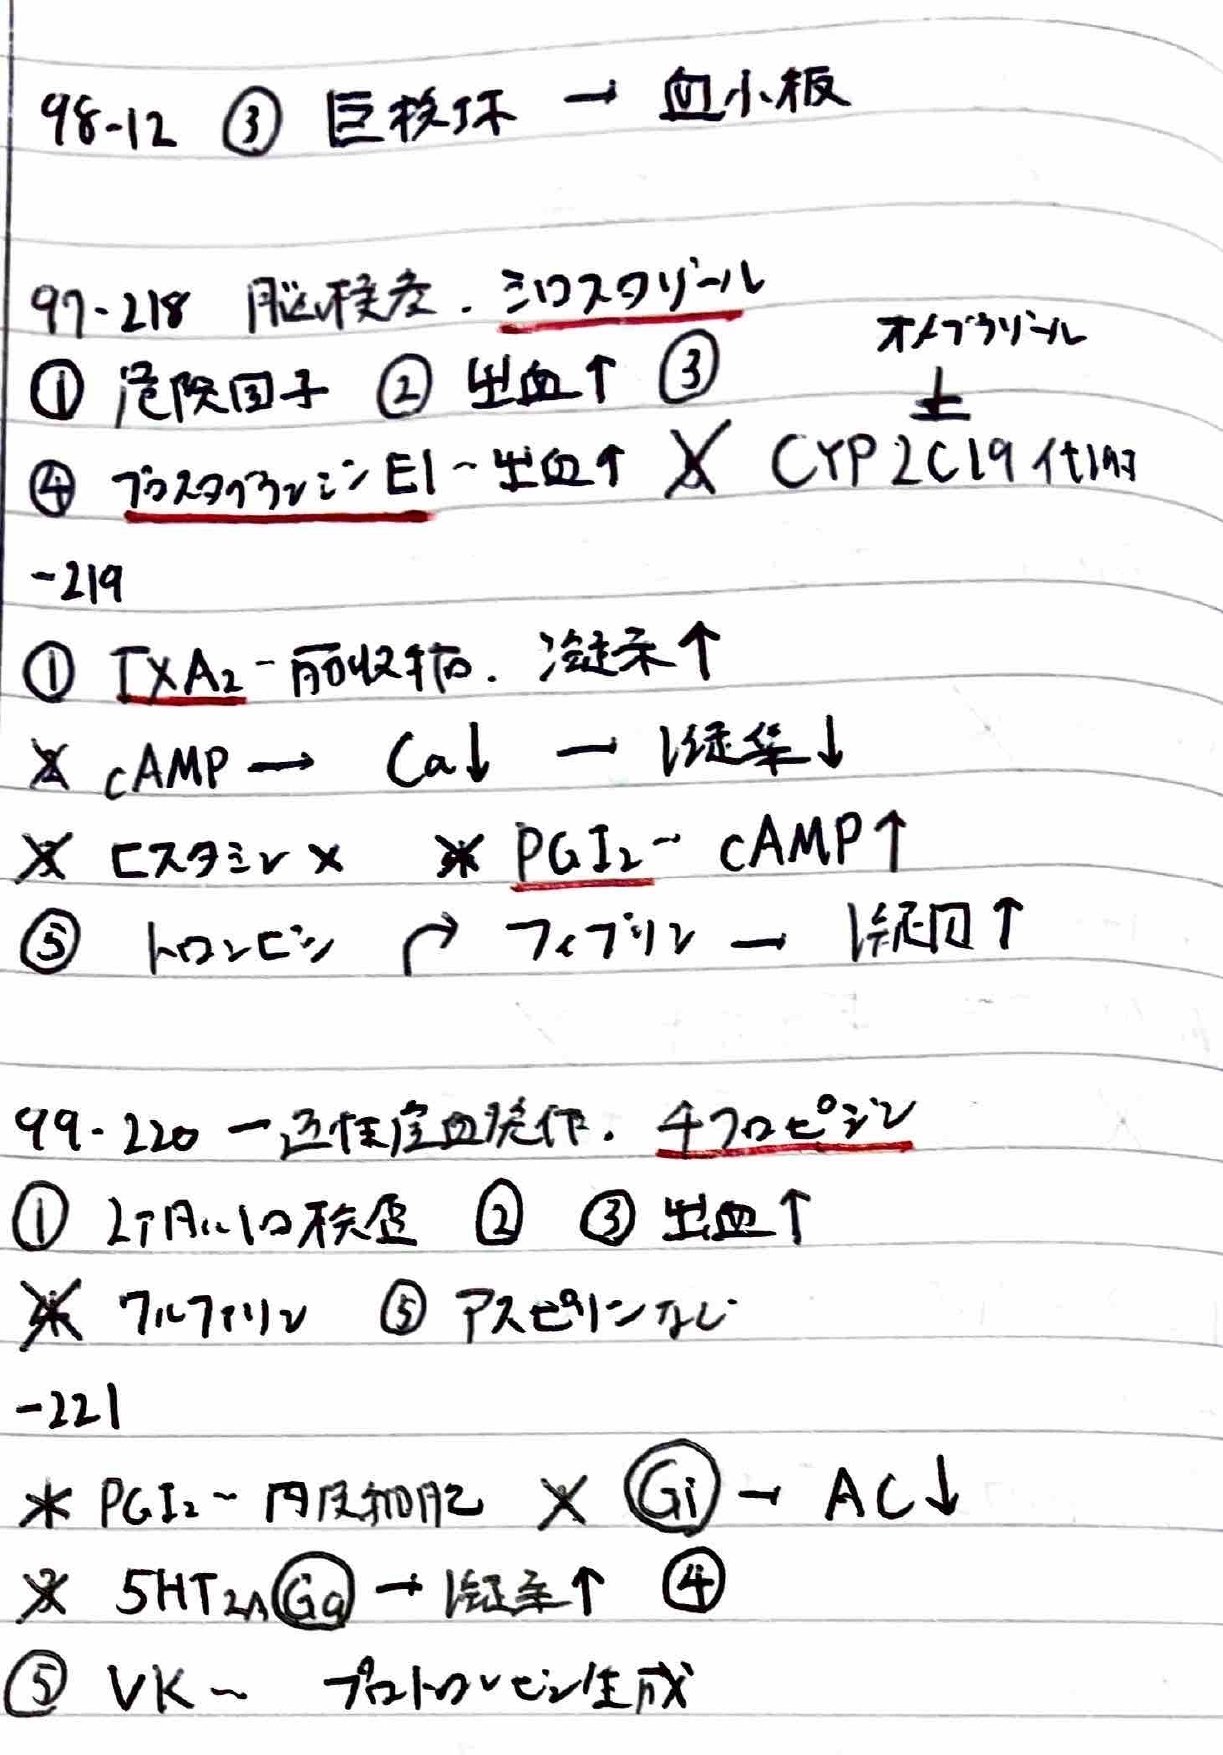 98-12 ③ 巨核球 → 血小板
97-218 脳梗塞.シロスタゾール
オメプラゾール
① 危険因子 ② 出血↑ ③ ⊥
④ プロスタグランジンE1~出血↑ X CYP2C19代謝
-219
① TXA2-血管収縮.凝集↑
X cAMP → Ca↓ → 凝集↓
X ヒスタミン× X PGI2~ cAMP↑
⑤ トロンビン ↱ フィブリン → 凝固↑
99-220 一過性虚血発作.チクロピジン
① 2ヶ月 検査 ② ③ 出血↑
X ワルファリン ⑤ アスピリンなし
-221
X PGI2~内皮細胞 X Gi → AC↓
X 5HT2A Gq → 凝集↑ ④
⑤ VK~ プロトロンビン生成